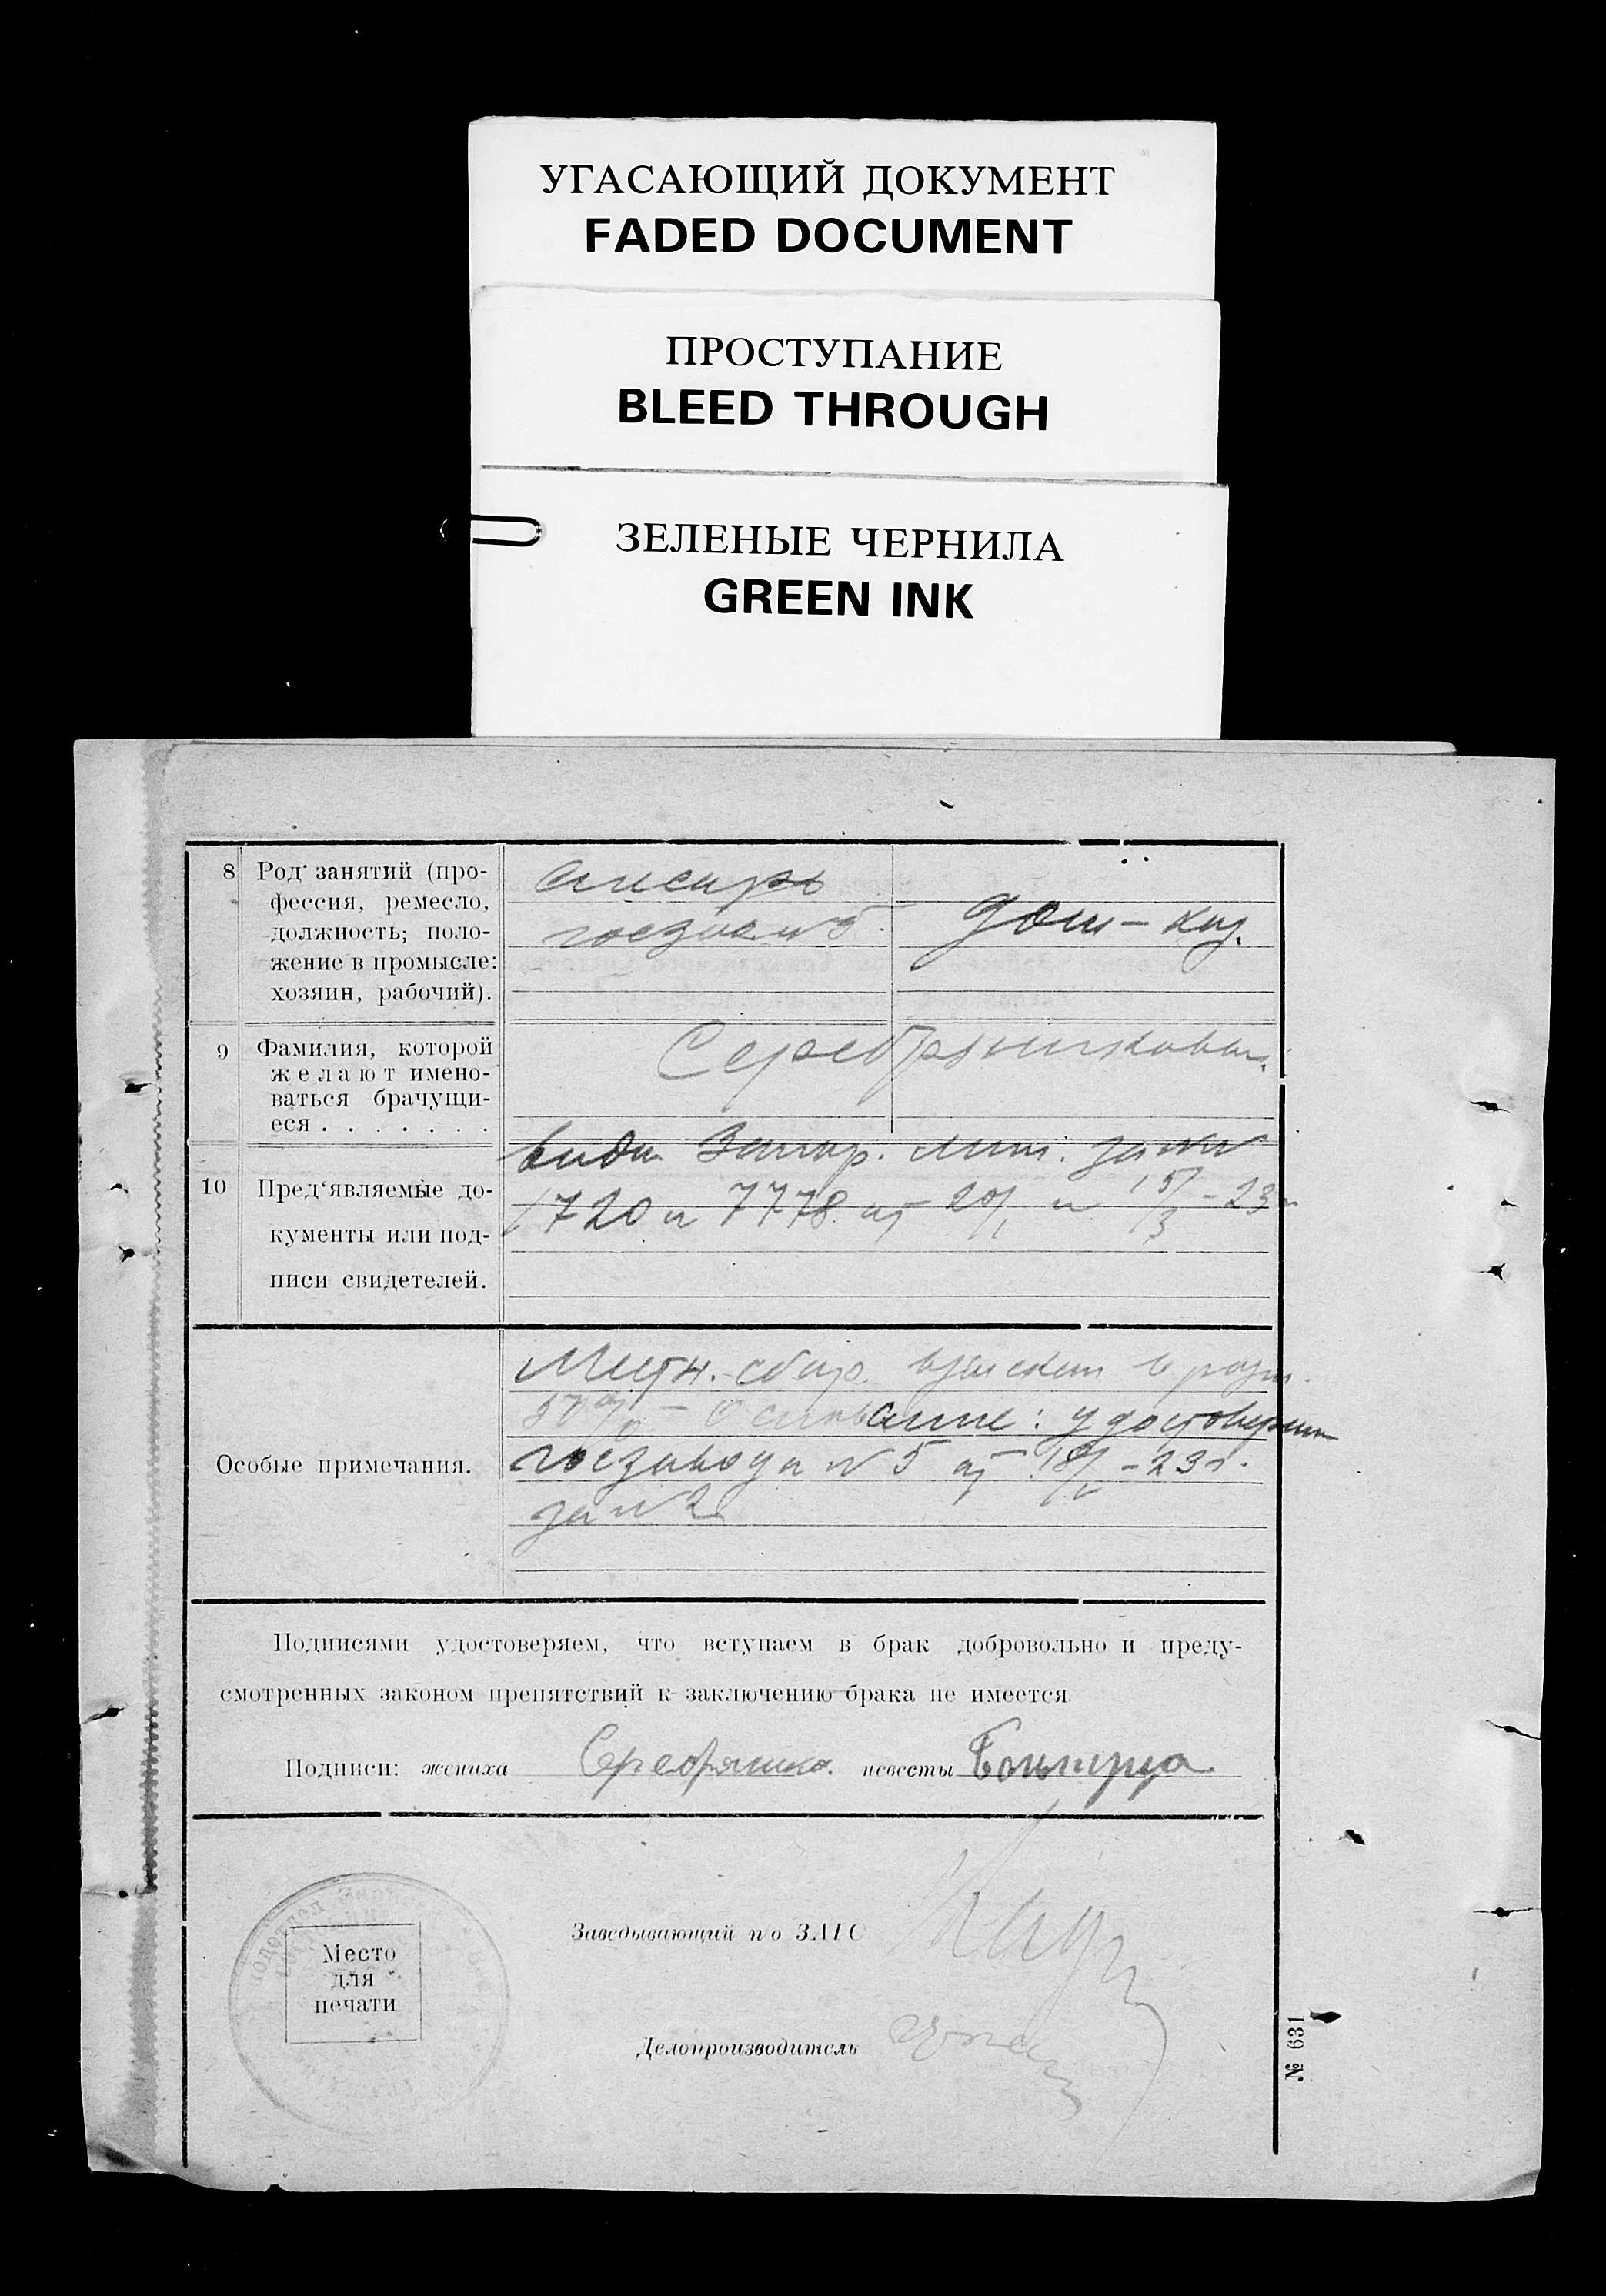 УГАСАЮЩИЙ ДОКУМЕНТ
FADED DOCUMENT
ПРОСТУПАНИЕ
BLEED THROUGH
ЗЕЛЕНЫЕ ЧЕРНИЛА
GREEN INK
8 Род занятий (про-
фессия, ремесло,
должность; поло-
жение в промысле:
хозяин, рабочий).
слесарь
№ 5.
дом-хоз.
9 Фамилия, которой
желают имено-
ваться брачущи-
еся . . . . . . .
Серебрянниковы.
10 Пред'являемые до-
кументы или под-
писи свидетелей.
виды мил. за №№
1720 и 7778 от 20/1 и 15/3 - 23 г
Особые примечания.
Местн. сбор взыскан в разм.
50% - Основание: удостоверение
госзавода № 5 от - 23 г.
за №
Подписями удостоверяем, что вступаем в брак добровольно и преду-
смотренных законом препятствий к заключению брака не имеется.
Подписи: жениха невесты
Место
для
печати
Заведывающий п/о ЗАГС
Делопроизводитель
№ 631